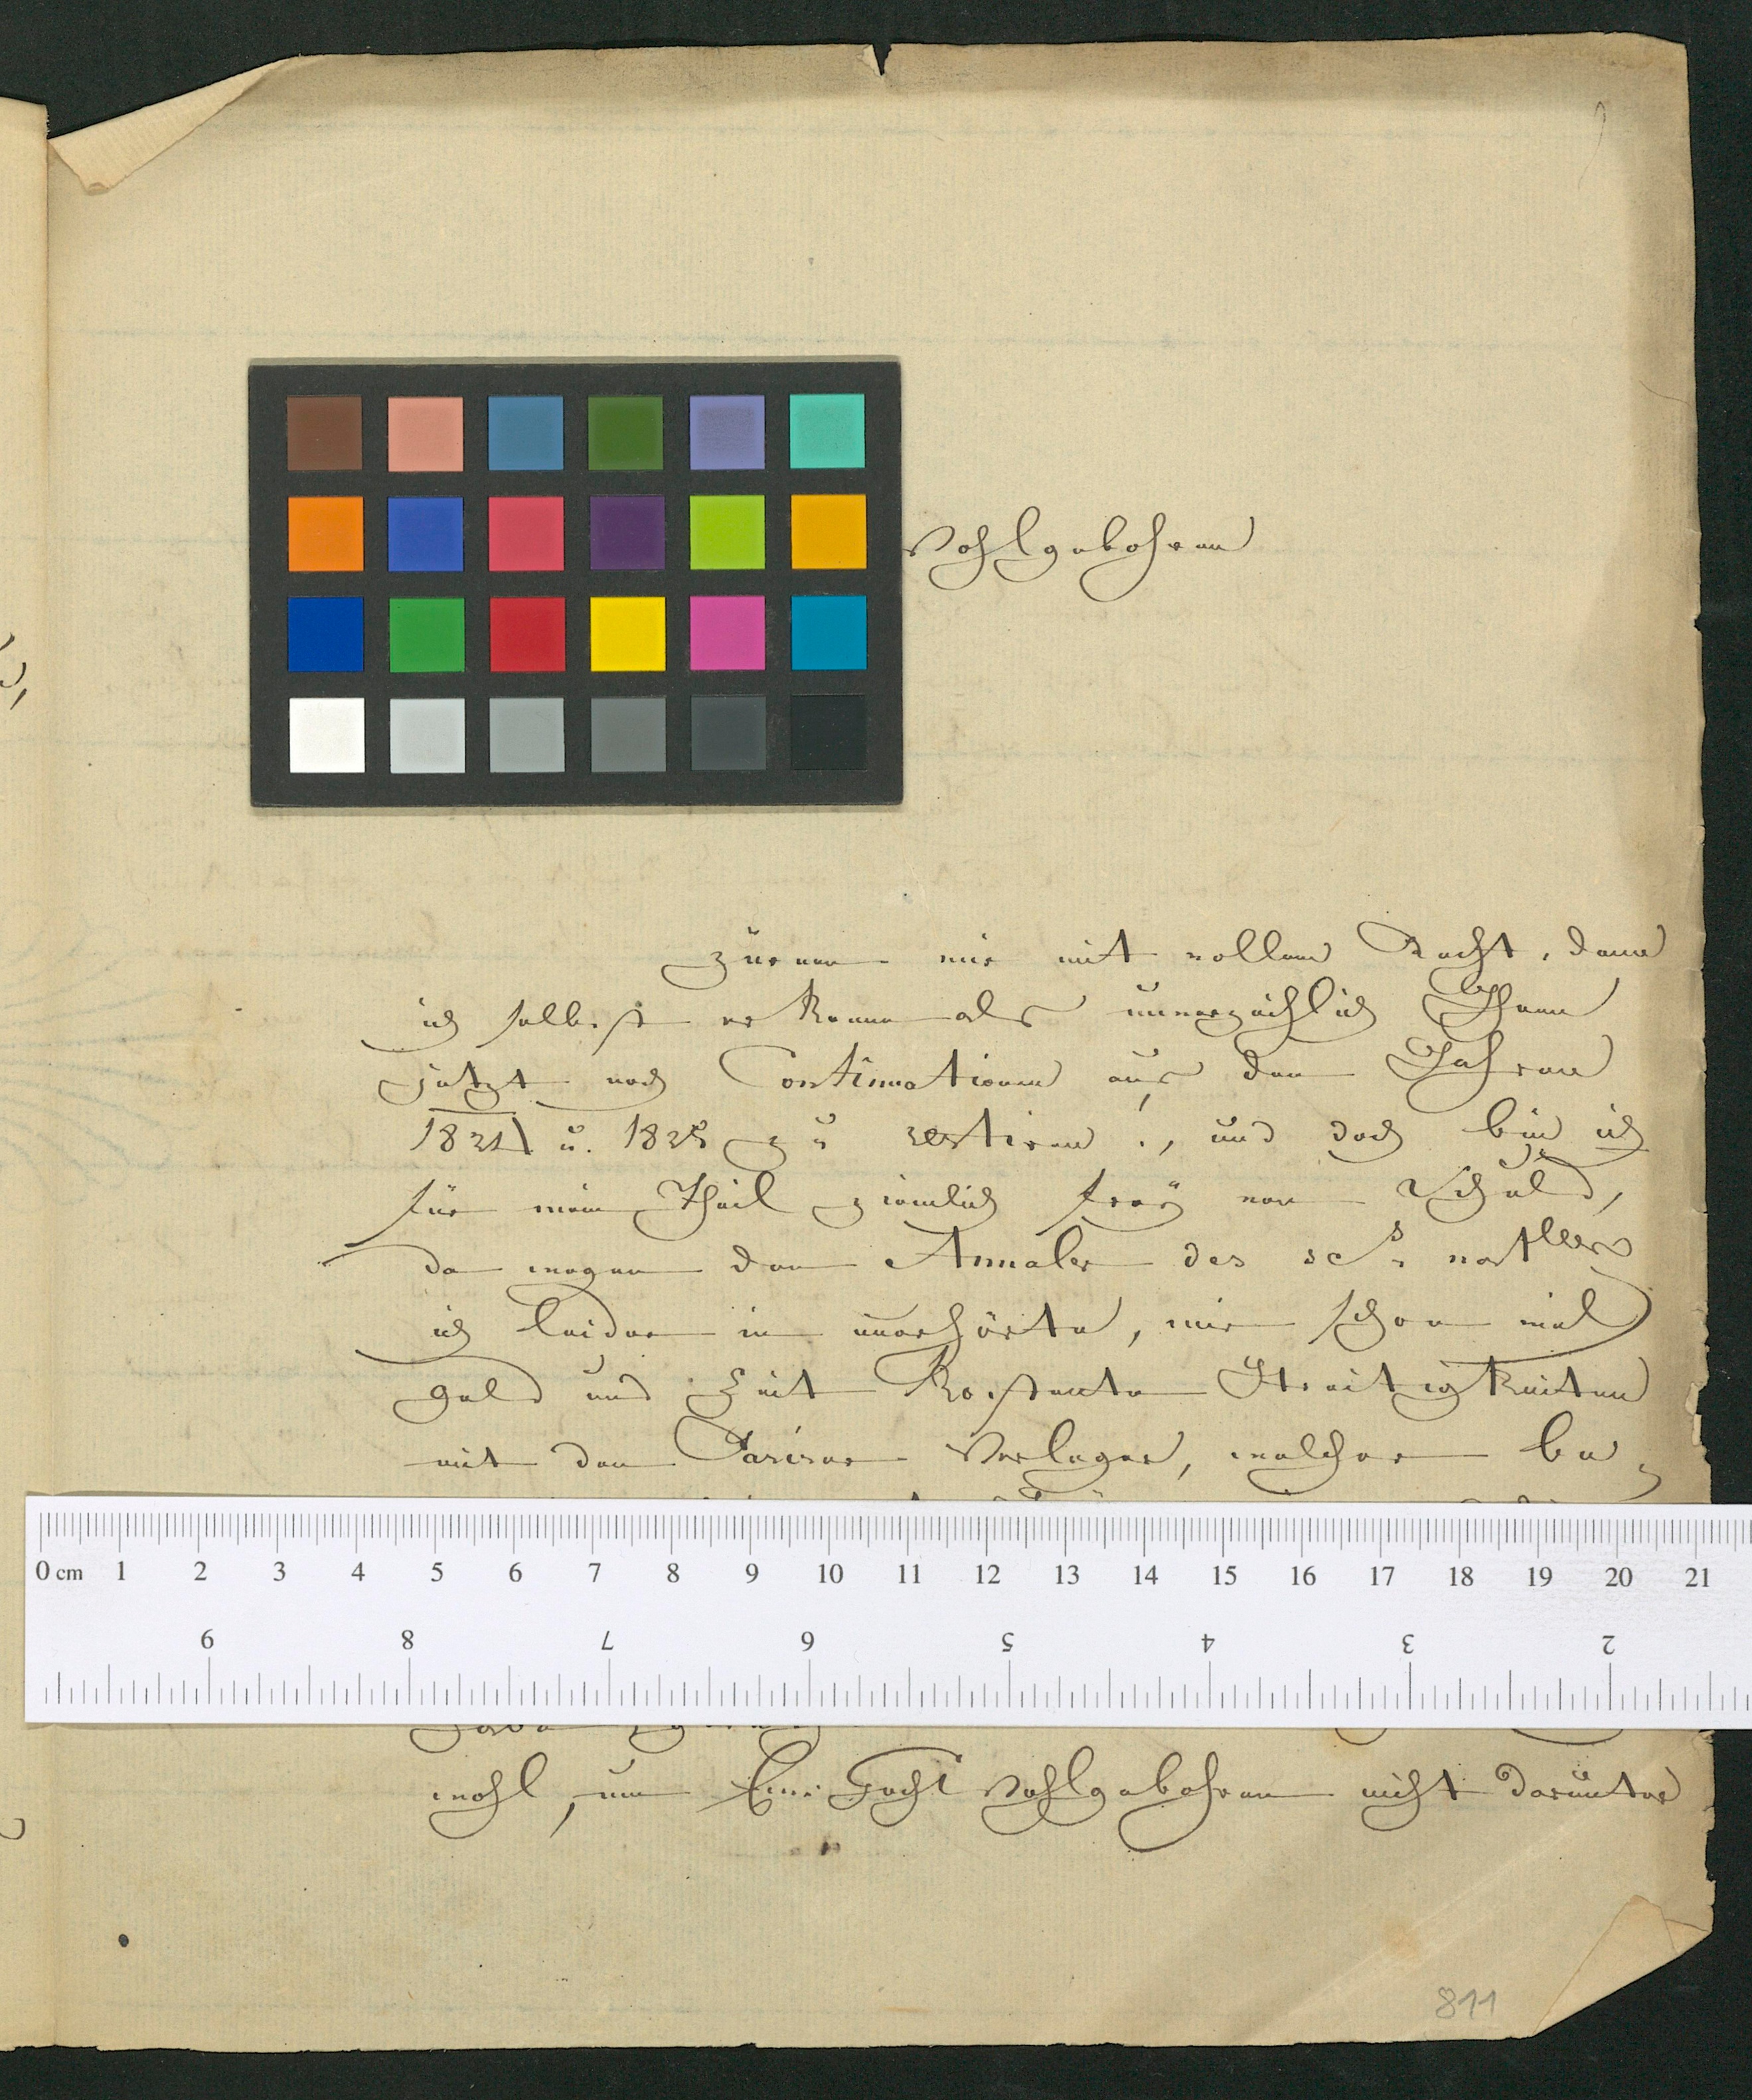 Wohlgebohren
zürnen mir mit vollem Recht, denn
ich selbst erkenne als unverzeihlich Ihnen
jetzt noch Continuationen aus den Jahren
und doch bin ich
für mein Theil ziemlich frey von Schuld,
da wegen den Annales des
ich leider in unerhörte, mir schon viel
geld und Zeit kostente Streitigkeiten
mit dem Pariser Verleger, welcher be
0 cm 1 2 3 4 5 6 7 8 9 10 11 12 13 14 15 16 17 18 19 20 21
9 8 7 6 5 4 3 2
wohl, um Eur: Hocht Wohlgebohren nicht darunter
811